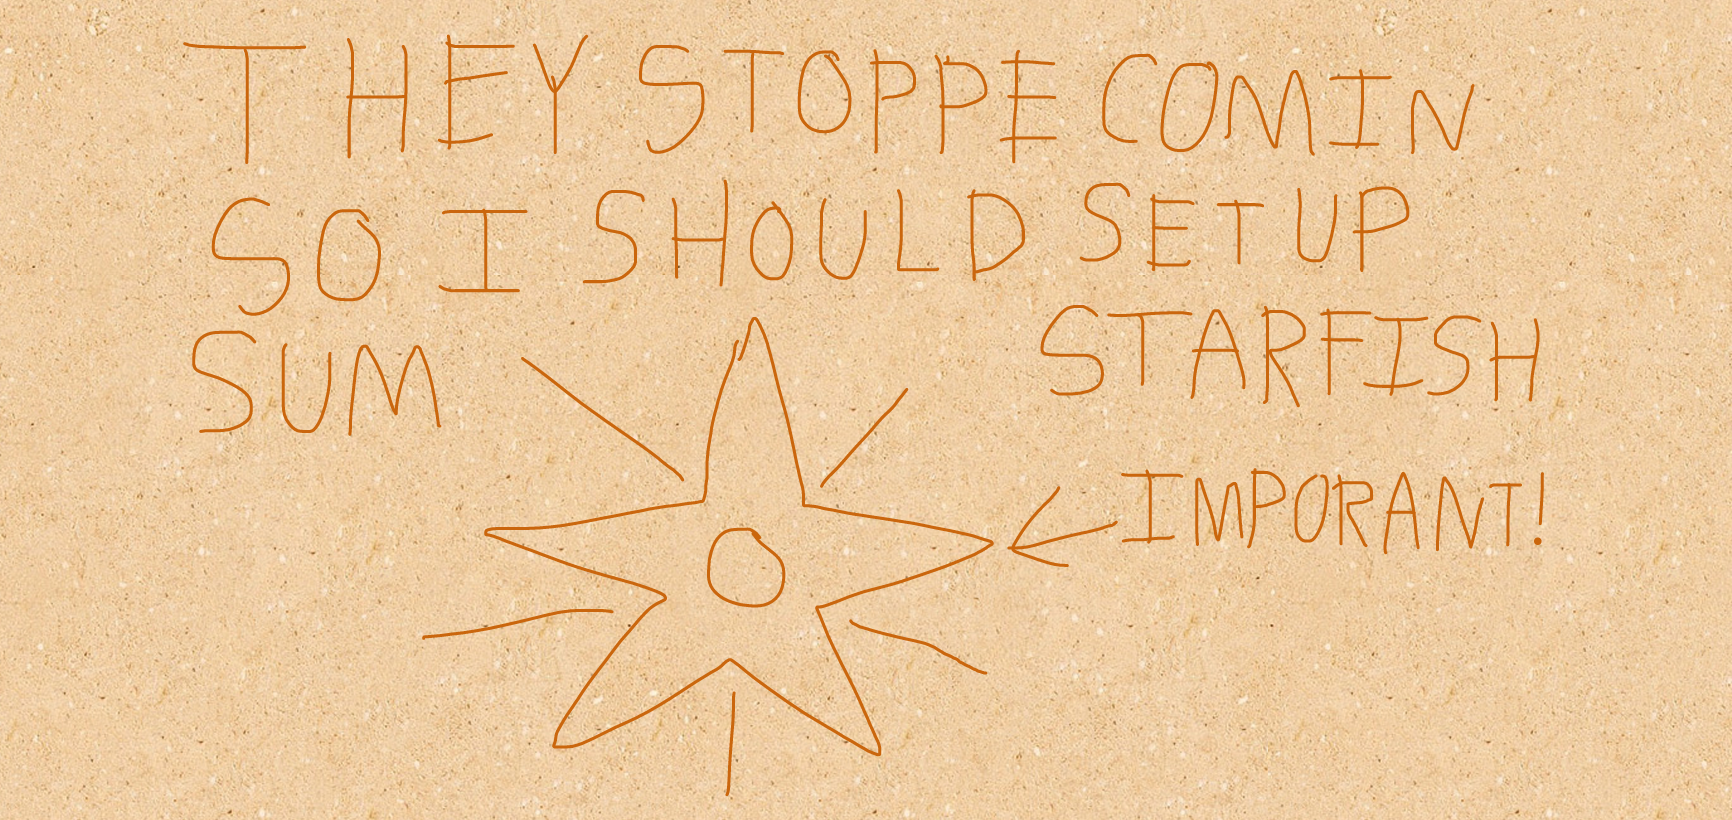 THEY STOPPE COMIN
SO I SHOULD SET UP
SUM STARFISH
IMPORANT!